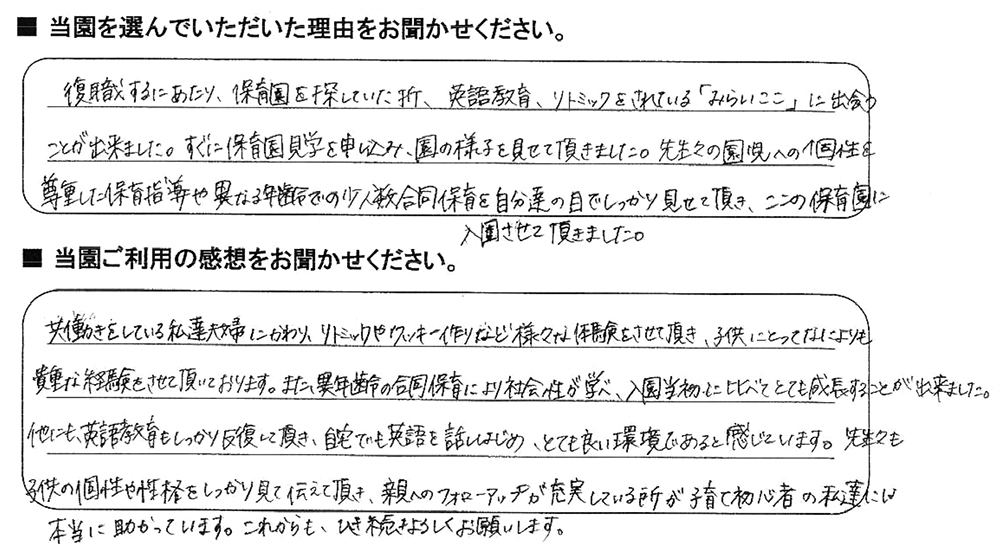 ■ 当園を選んでいただいた理由をお聞かせください。
復職するにあたり、保育園を探していた所、英語教育、リトミックをされている「みらいここ」に出会う
ことが出来ました。すぐに保育園見学を申し込み、園の様子を見せて頂きました。先生々の園児への個性を
尊重した保育指導や異なる年齢での少人数合同保育を自分達の目でしっかり見せて頂き、ここの保育園に
入園させて頂きました。
■ 当園ご利用の感想をお聞かせください。
共働きをしている私達夫婦にかわり、リトミックやクッキー作りなど様々な体験をさせて頂き、子供にとってなによりも
貴重な経験をさせて頂いております。また、異年齢の合同保育により社会性が学べ、入園当初に比べてとても成長することが出来ました。
他にも、英語教育もしっかり反復して頂き、自宅でも英語を話しはじめ、とても良い環境であると感じています。先生々も
子供の個性や性格をしっかり見て伝えて頂き、親へのフォローアップが充実している所が子育て初心者の私達には
本当に助かっています。これからも、ひき続きよろしくお願いします。